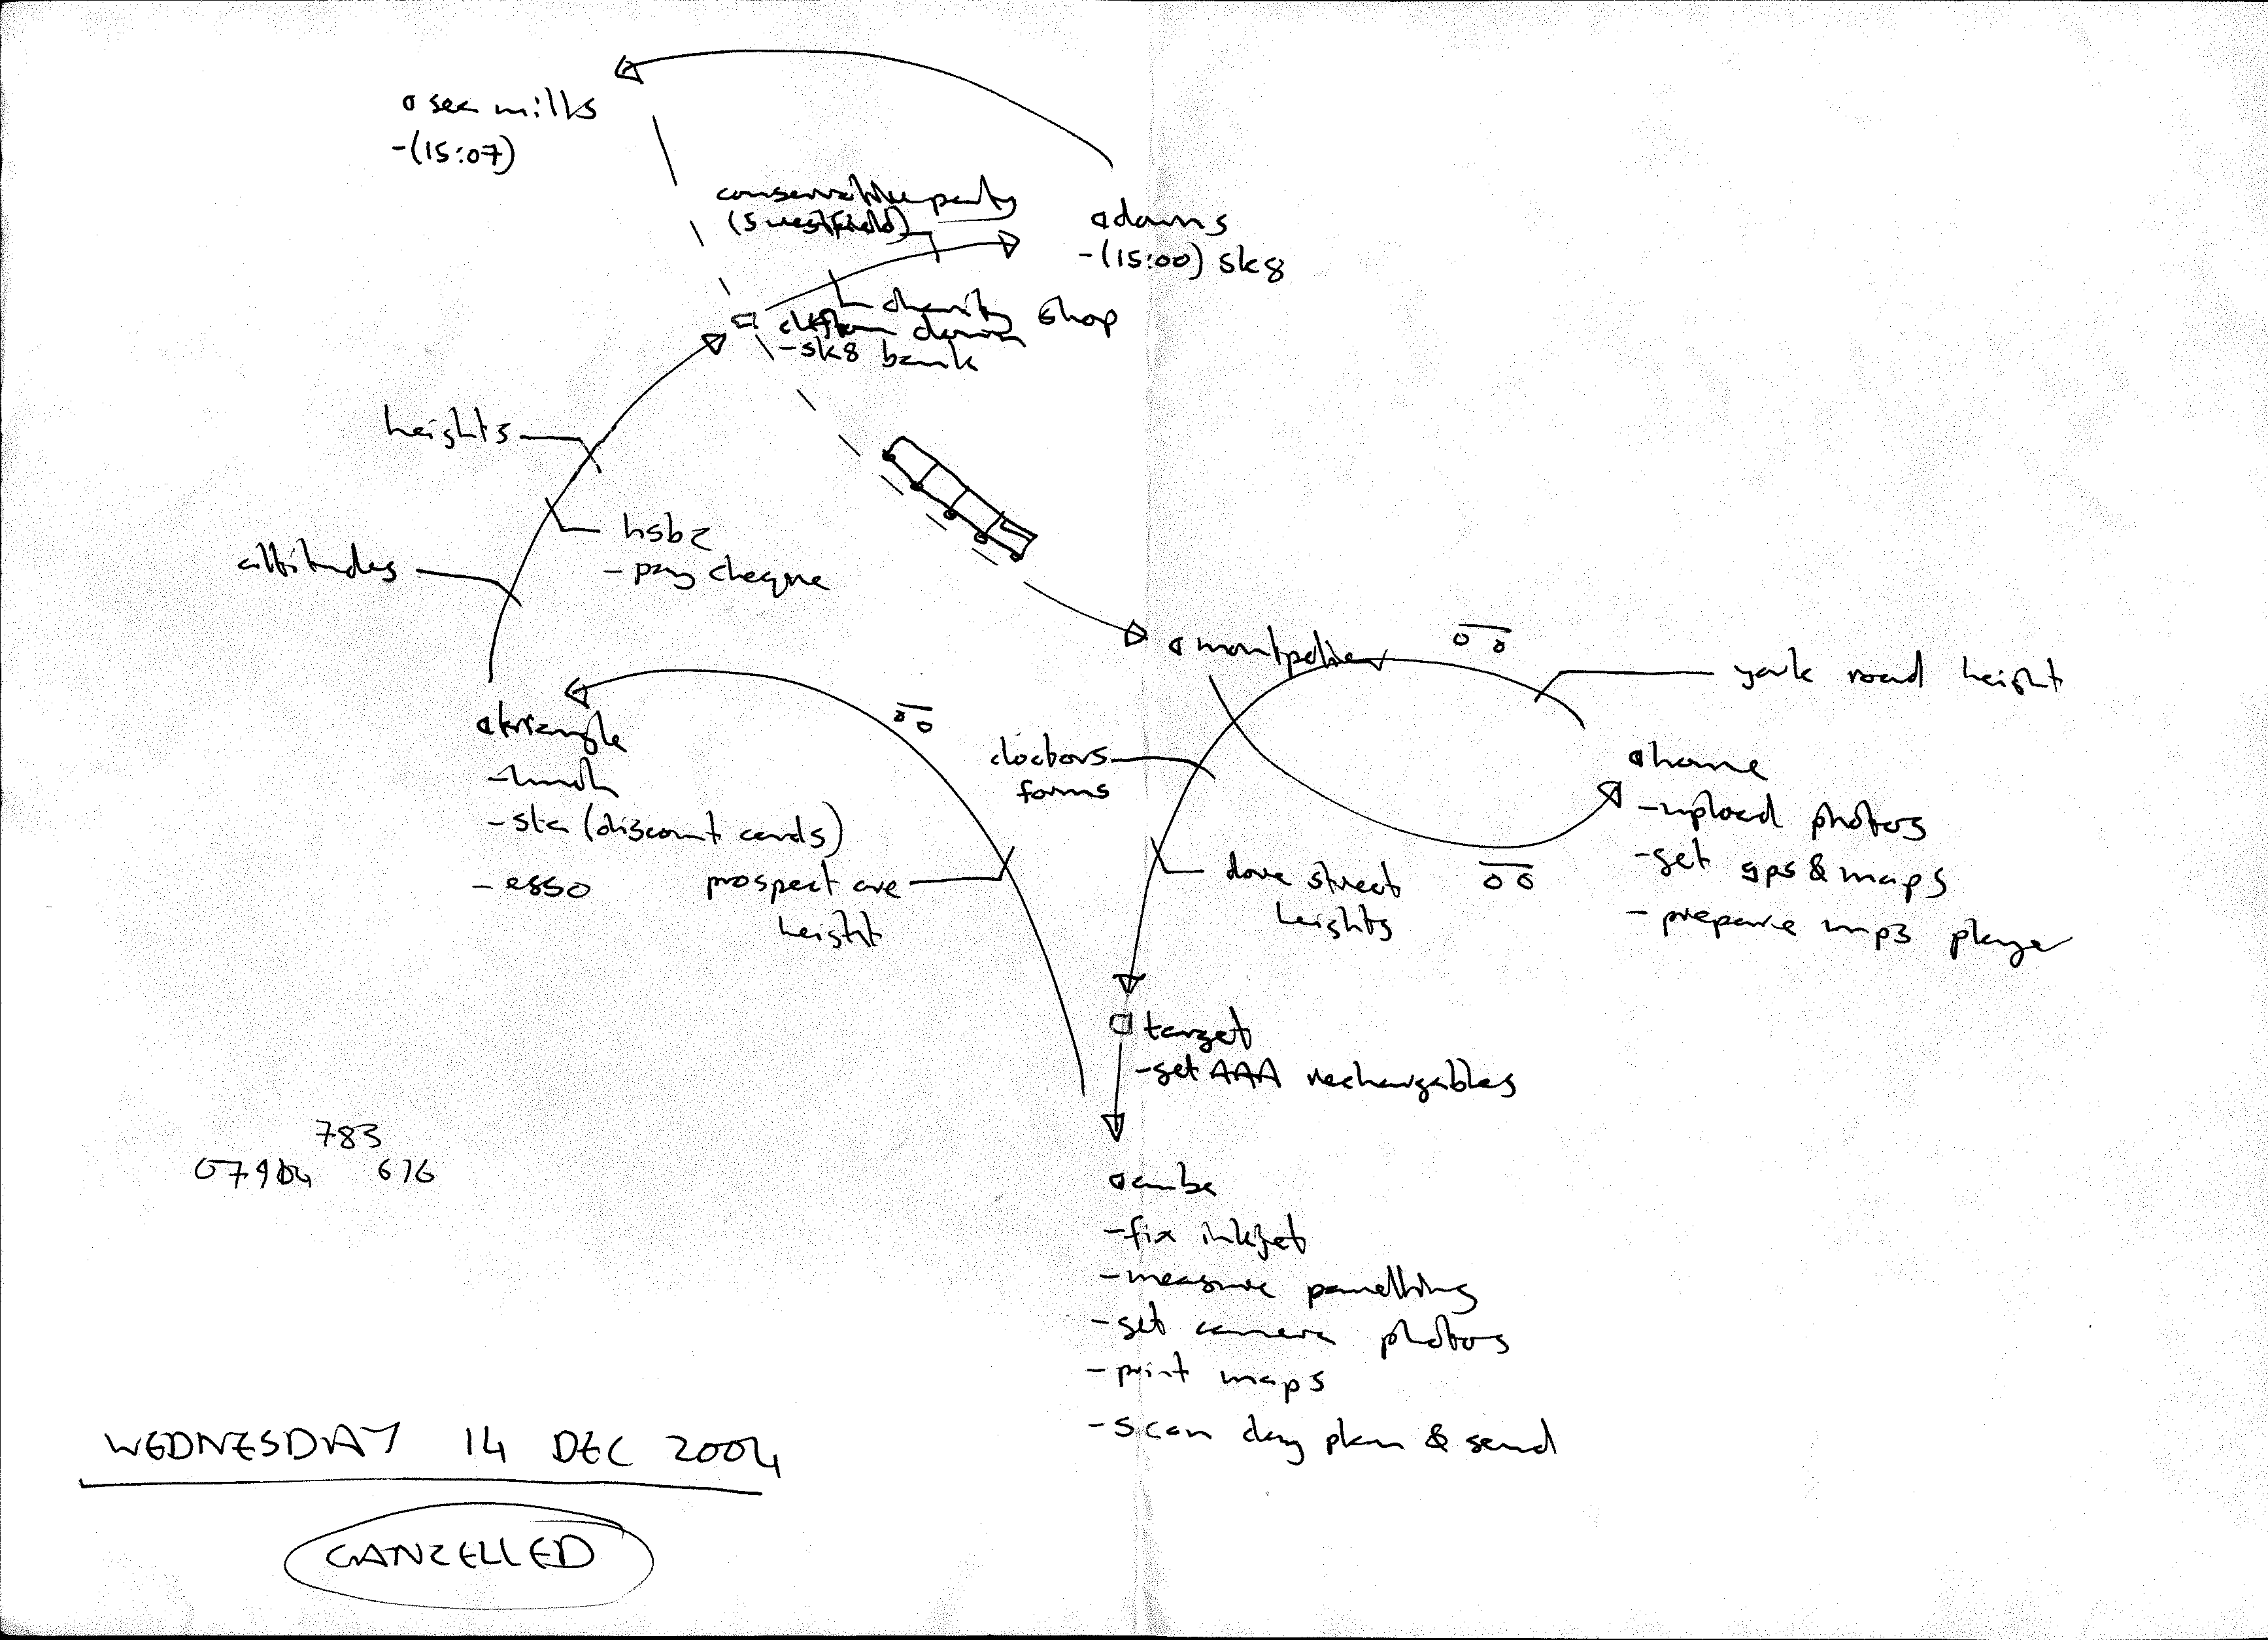 sea mills
-(15:07)
conservative party
(5 westfield)
adams
-(15:00) sk8
charity shop
clifton down
-sk8 bank
heights
hsbc
- pay cheque
altitudes
montpelier
york road height
triangle
-lunch
-sta (discount cards)
- esso
prospect ave
height
doctors
forms
dove street
heights
home
-upload photos
-get gps & maps
- prepare mp3 player
target
-get AAA rechargables
783
616
cube
-fix inkjet
-measure panelling
-get camera photos
-print maps
-scan day plan & send
WEDNESDAY 14 DEC 2004
CANCELLED